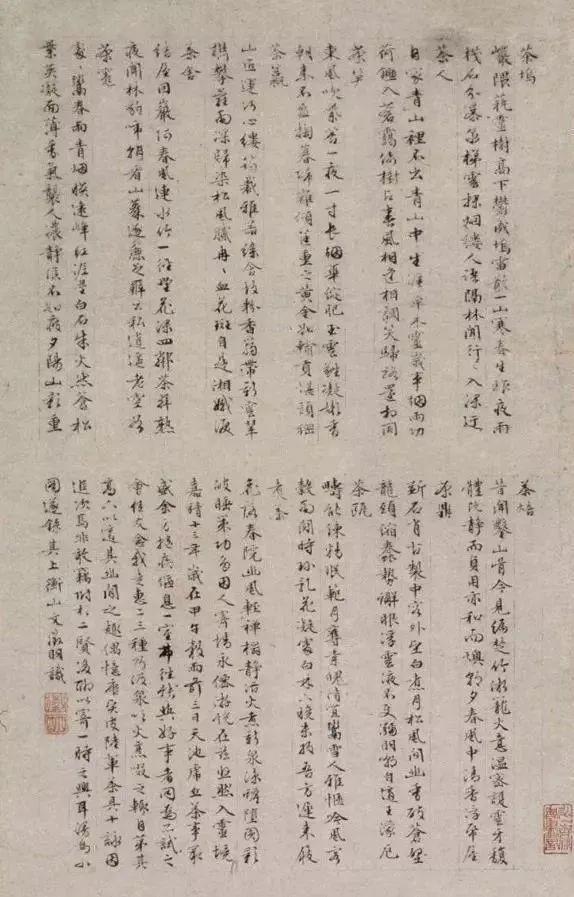 茶塢
巖隈藝靈樹高下鬱成塢雷散一山寒春生昨夜雨
棧石分瀑泉梯雲探烟縷人語隔林聞行〻入深迂
茶人
自家青山裡不出青山中生涯草木靈歲事烟雨功
荷鋤入蒼靄倚樹占春風相逢相調笑歸路還相同
茶笋
東風吹紫苔一夜一寸長烟華綻肥玉雲蕤凝嫩香
朝來不盈掬暮歸難傾筐重之黄金如輸貢堪頭綱
茶籝
山匠運巧心縷筠裁雅器綠含故粉香蒻帶新雲翠
携攀蘿雨深歸染松風膩冉〻血花斑自是湘娥淚
茶舍
結屋因巖阿春風連水竹一徑野花深四鄰茶荈熟
夜聞林豹啼朝看山麋逐麤足辦公私逍遥老空谷
茶竈
處〻鬻春雨青烟映遠峰紅泥壘白石朱火然蒼松
紫英凝面薄香氣襲人濃靜候不知疲夕陽山影重
茶焙
昔聞鑿山骨今見編楚竹微籠火意温密護雲牙馥
體既靜而貞用亦和而燠朝夕春風中清香浮帋屋
茶鼎
斫石肖古製中容外堅白煮月松風間幽香破蒼壁
龍頭縮蠢勢蟹眼浮雲液不使彌明嘲自適王濛厄
茶甌
疇能煉精珉範月奪素魄清宜鬻雪人雅愜吟風客
穀雨鬥時珍乳花凝處白林下晚未收吾方遲來屐
煮茶
花落春院幽風輕禪榻靜活火煮新泉涼蟾墮圓影
破睡策功多因人寄情永僊游恍在茲悠然入靈境
嘉靖十三年歲在甲午穀雨前三日天池虎丘茶事最
盛余方抱疾偃息一室弗能往與好事者同為品試之
會佳友念我走惠二三種乃汲泉以火烹啜之輒自第其
高下以適其幽閒之趣偶憶唐賢皮陸輩茶具十詠因
追次焉非敢竊附於二賢後聊以寄一時之興耳漫為小
圖遂錄其上衡山文徵明識